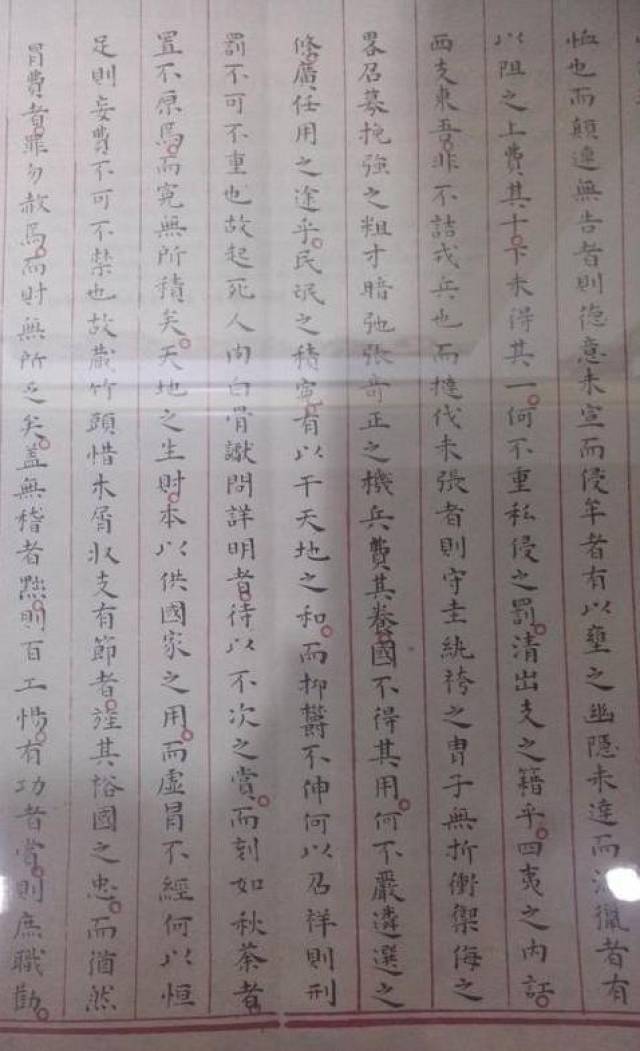 恤也而顛連無告者則德意未宣而侵牟者有以壅之幽隱未達而漁獵者有
以阻之上費其十下未得其一何不重私侵之罰清出支之籍乎四夷之內訌
西支東吾非不詰戎兵也而撻伐未張者則守圭紈袴之冑子無折衝禦侮之
畧召募挽強之粗才暗弛張奇正之機兵費其養國不得其用何不嚴遴選之
條廣任用之途乎民氓之積寃有以干天地之和而抑欝不伸何以召祥則刑
罰不可不重也故起死人肉白骨讞問詳明者待以不次之賞而刻如秋荼者
置不原焉而寃無所積矣天地之生財本以供國家之用而虛冒不經何以恒
足則妄費不可不禁也故藏竹頭惜木屑收支有節者旌其裕國之忠而猶然
冒費者罪勿赦焉而財無所乏矣蓋無稽者黜則百工惕有功者賞則庶職勸